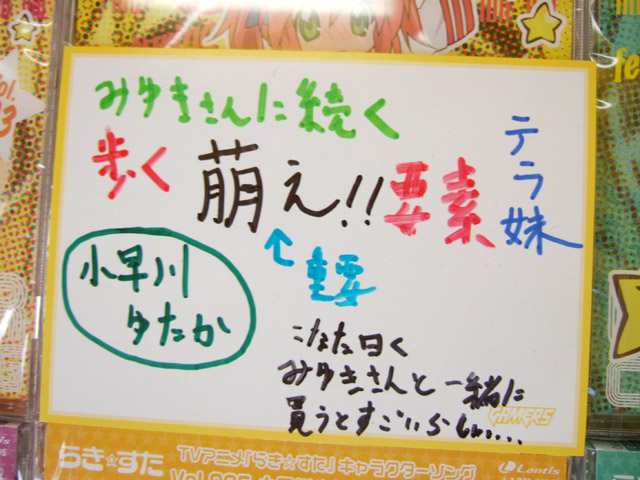 みゆきさんに続く
歩く
萌え!!
要素
テラ妹
↑
重要
小早川
ゆたか
こなた曰く
みゆきさんと一緒に
買うとすごいらしい...
GAMERS
らき☆すた
TVアニメ「らき☆すた」キャラクターソング
Lantis
Vol.005
Vol.